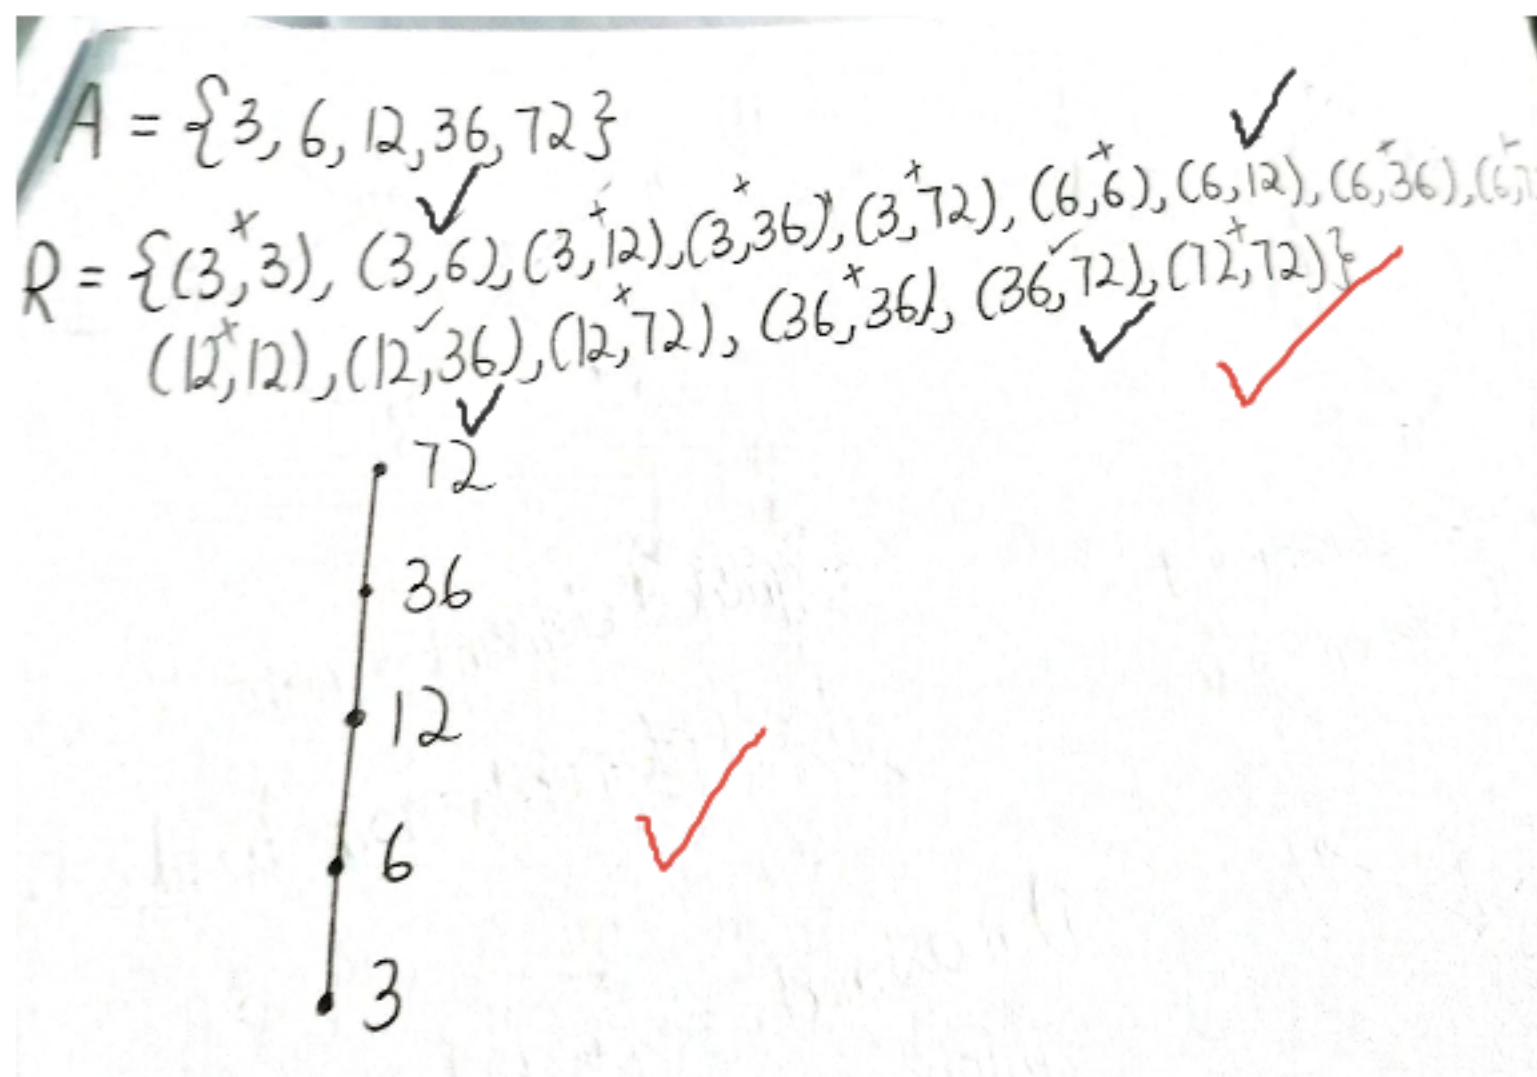 A = {3, 6, 12, 36, 72}
R = {(3,3), (3,6), (3,12), (3,36), (3,72), (6,6), (6,12), (6,36), (6,7
(12,12), (12,36), (12,72), (36,36), (36,72), (72,72)}
72
36
12
6
3